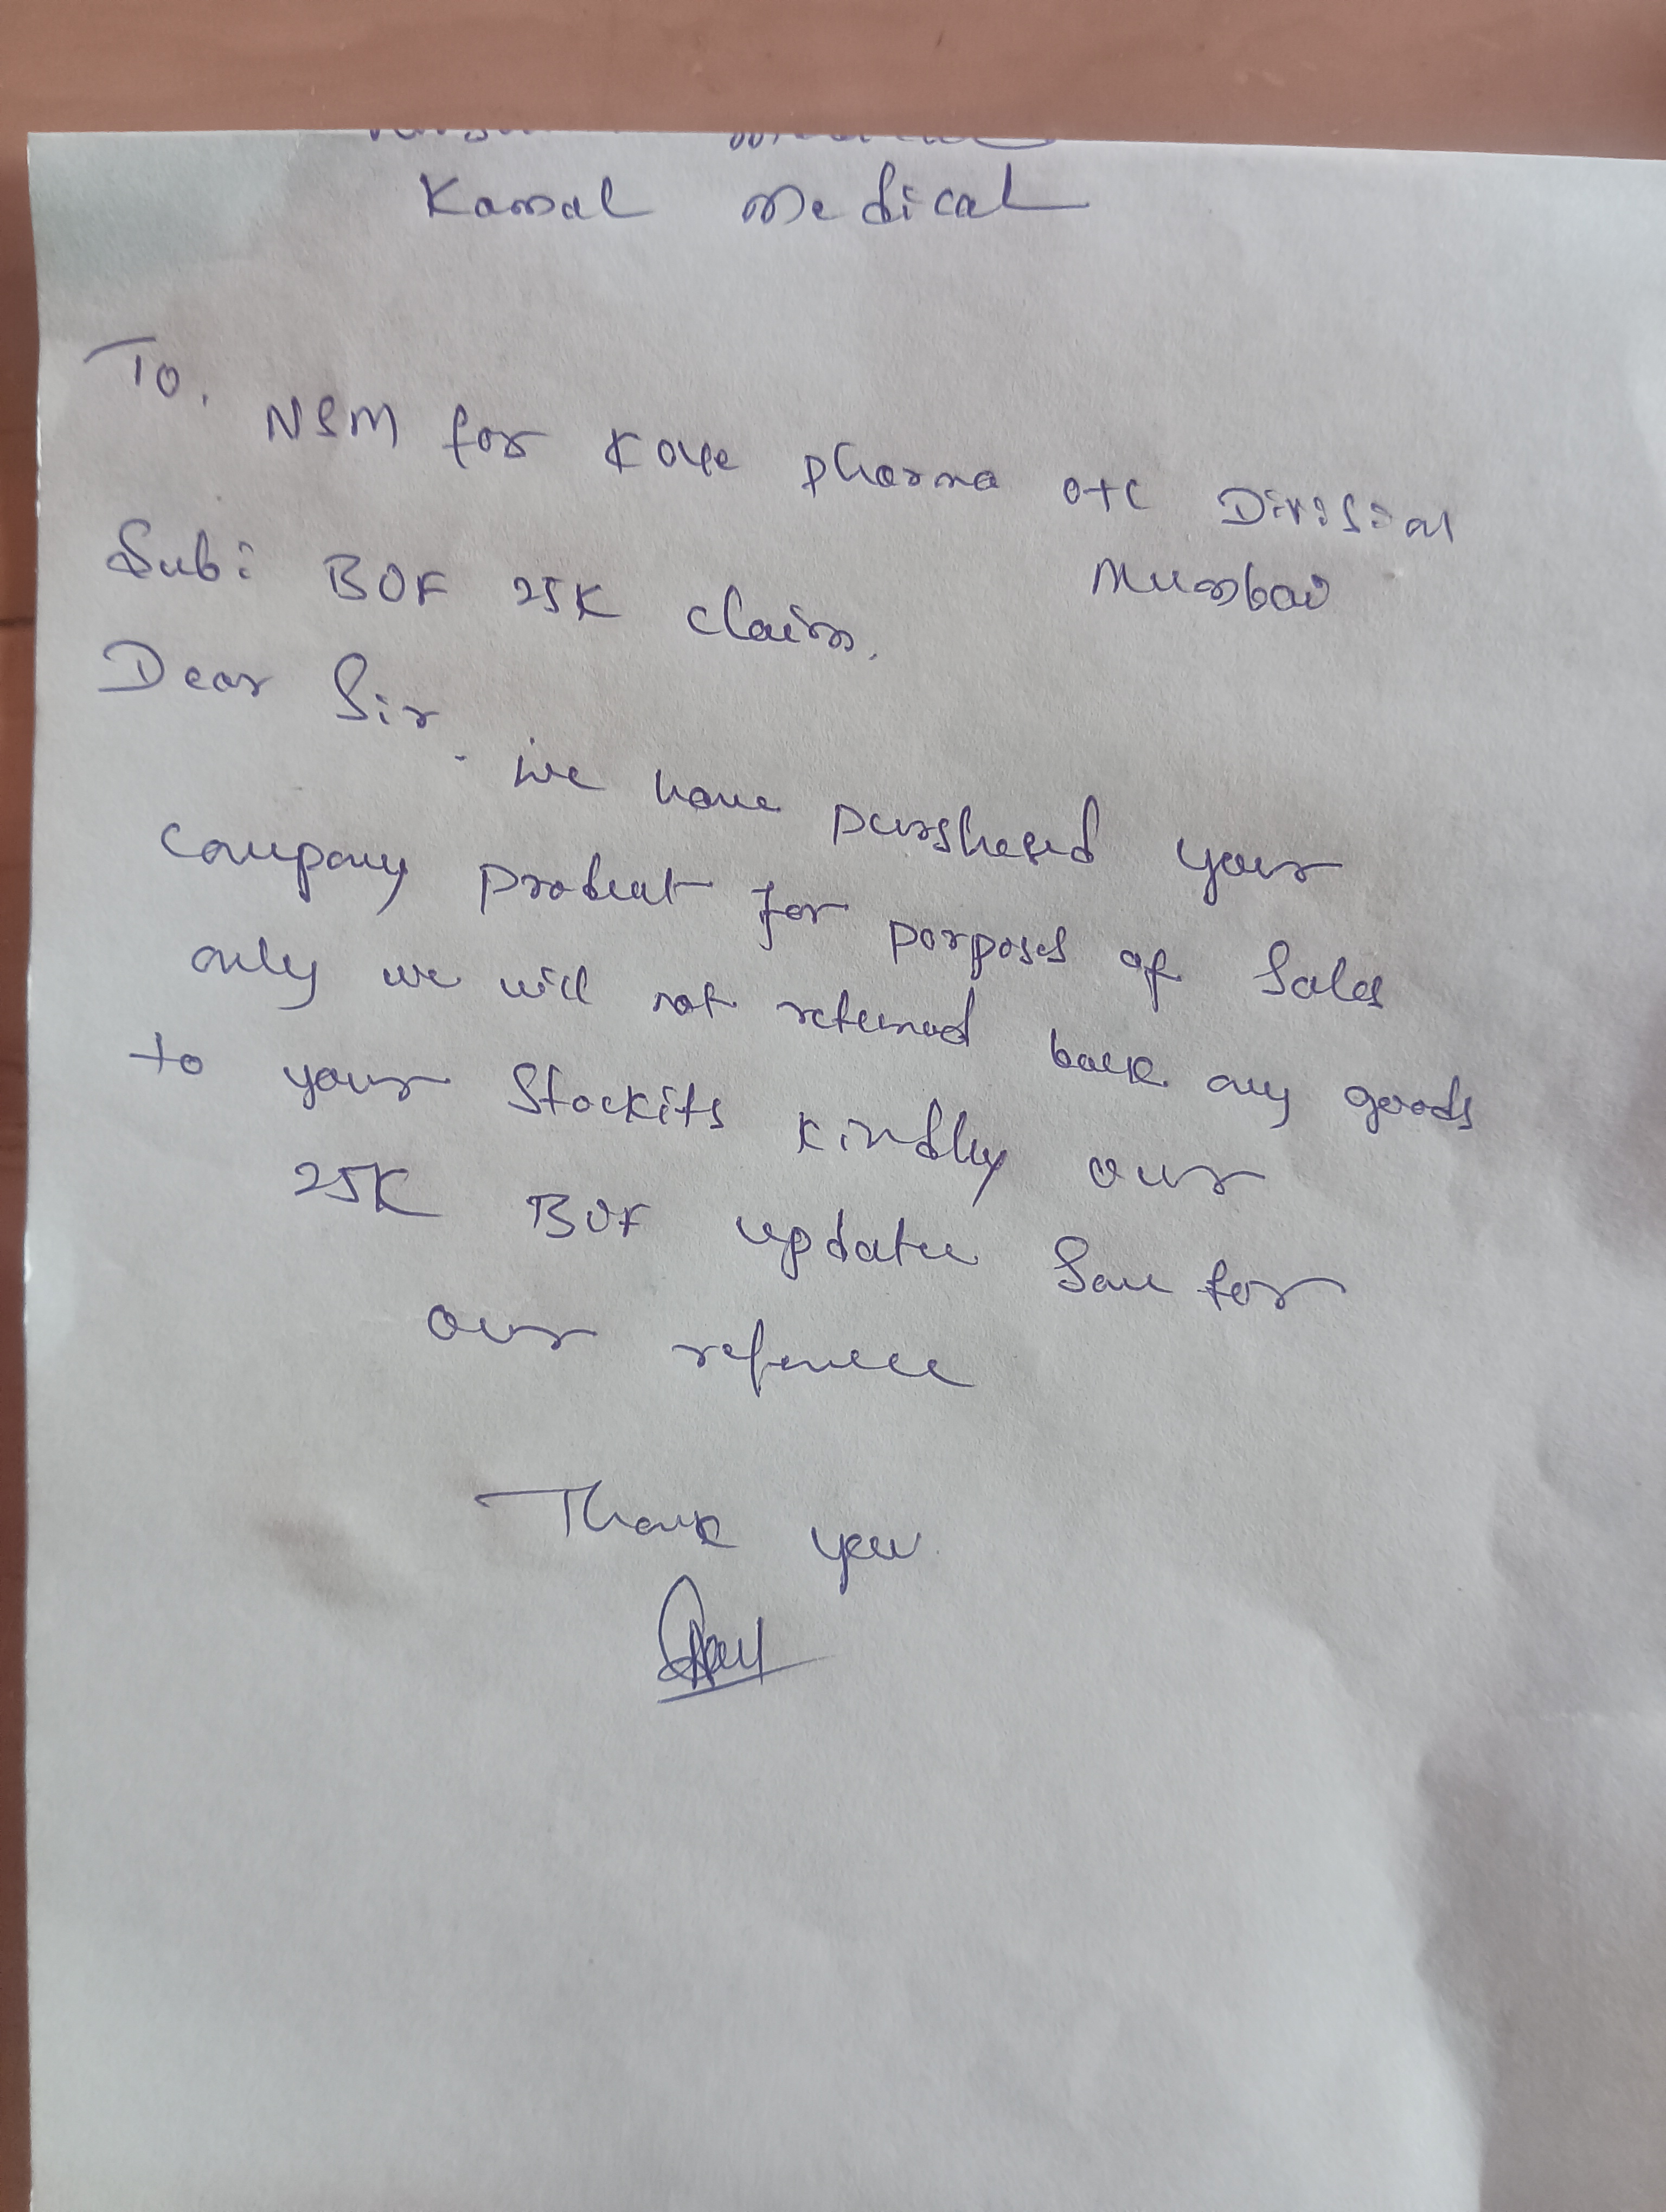 Kamal Medical
To,
NSM for Koye pharma OTC Division
Mumbai
Sub: BOF 25K claim.
Dear Sir,
we have purshesed your
company product for porposes of sales
only we will not returned back any goods
to your Stockits kindly our
25K BOF update for
our refrence
Thank you